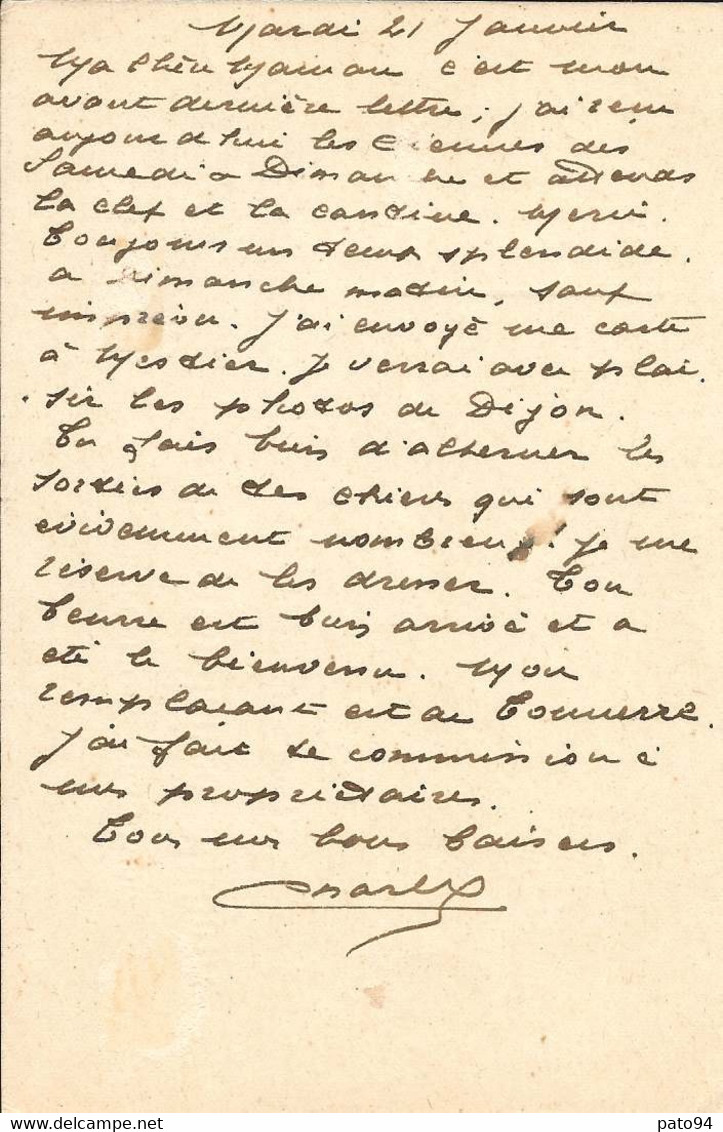 Mardi 21 Janvier
Ma chère Maman c'est mon
avant dernière lettre ; j'ai reçu
aujourd'hui les tiennes des
Samedi & Dimanche et attends
la clef et la cantine. Merci.
Toujours un temps splendide.
a Dimanche matin, sauf
imprévu. J'ai envoyé une carte
à Mestier. Je verrai avec plai
sir les photos de Dijon.
Tu fais bien d'acheter les
de tes chiens qui sont
évidemment nombreux ! Je me
réserve de les dresser. Ton
beurre est bien arrivé et a
été le bienvenu. Mon
remplaçant est de Tonnerre.
J'ai fait ta commission à
mes propriétaires.
Tous mes bons baisers.
Charles
Delcampe.net
pato94